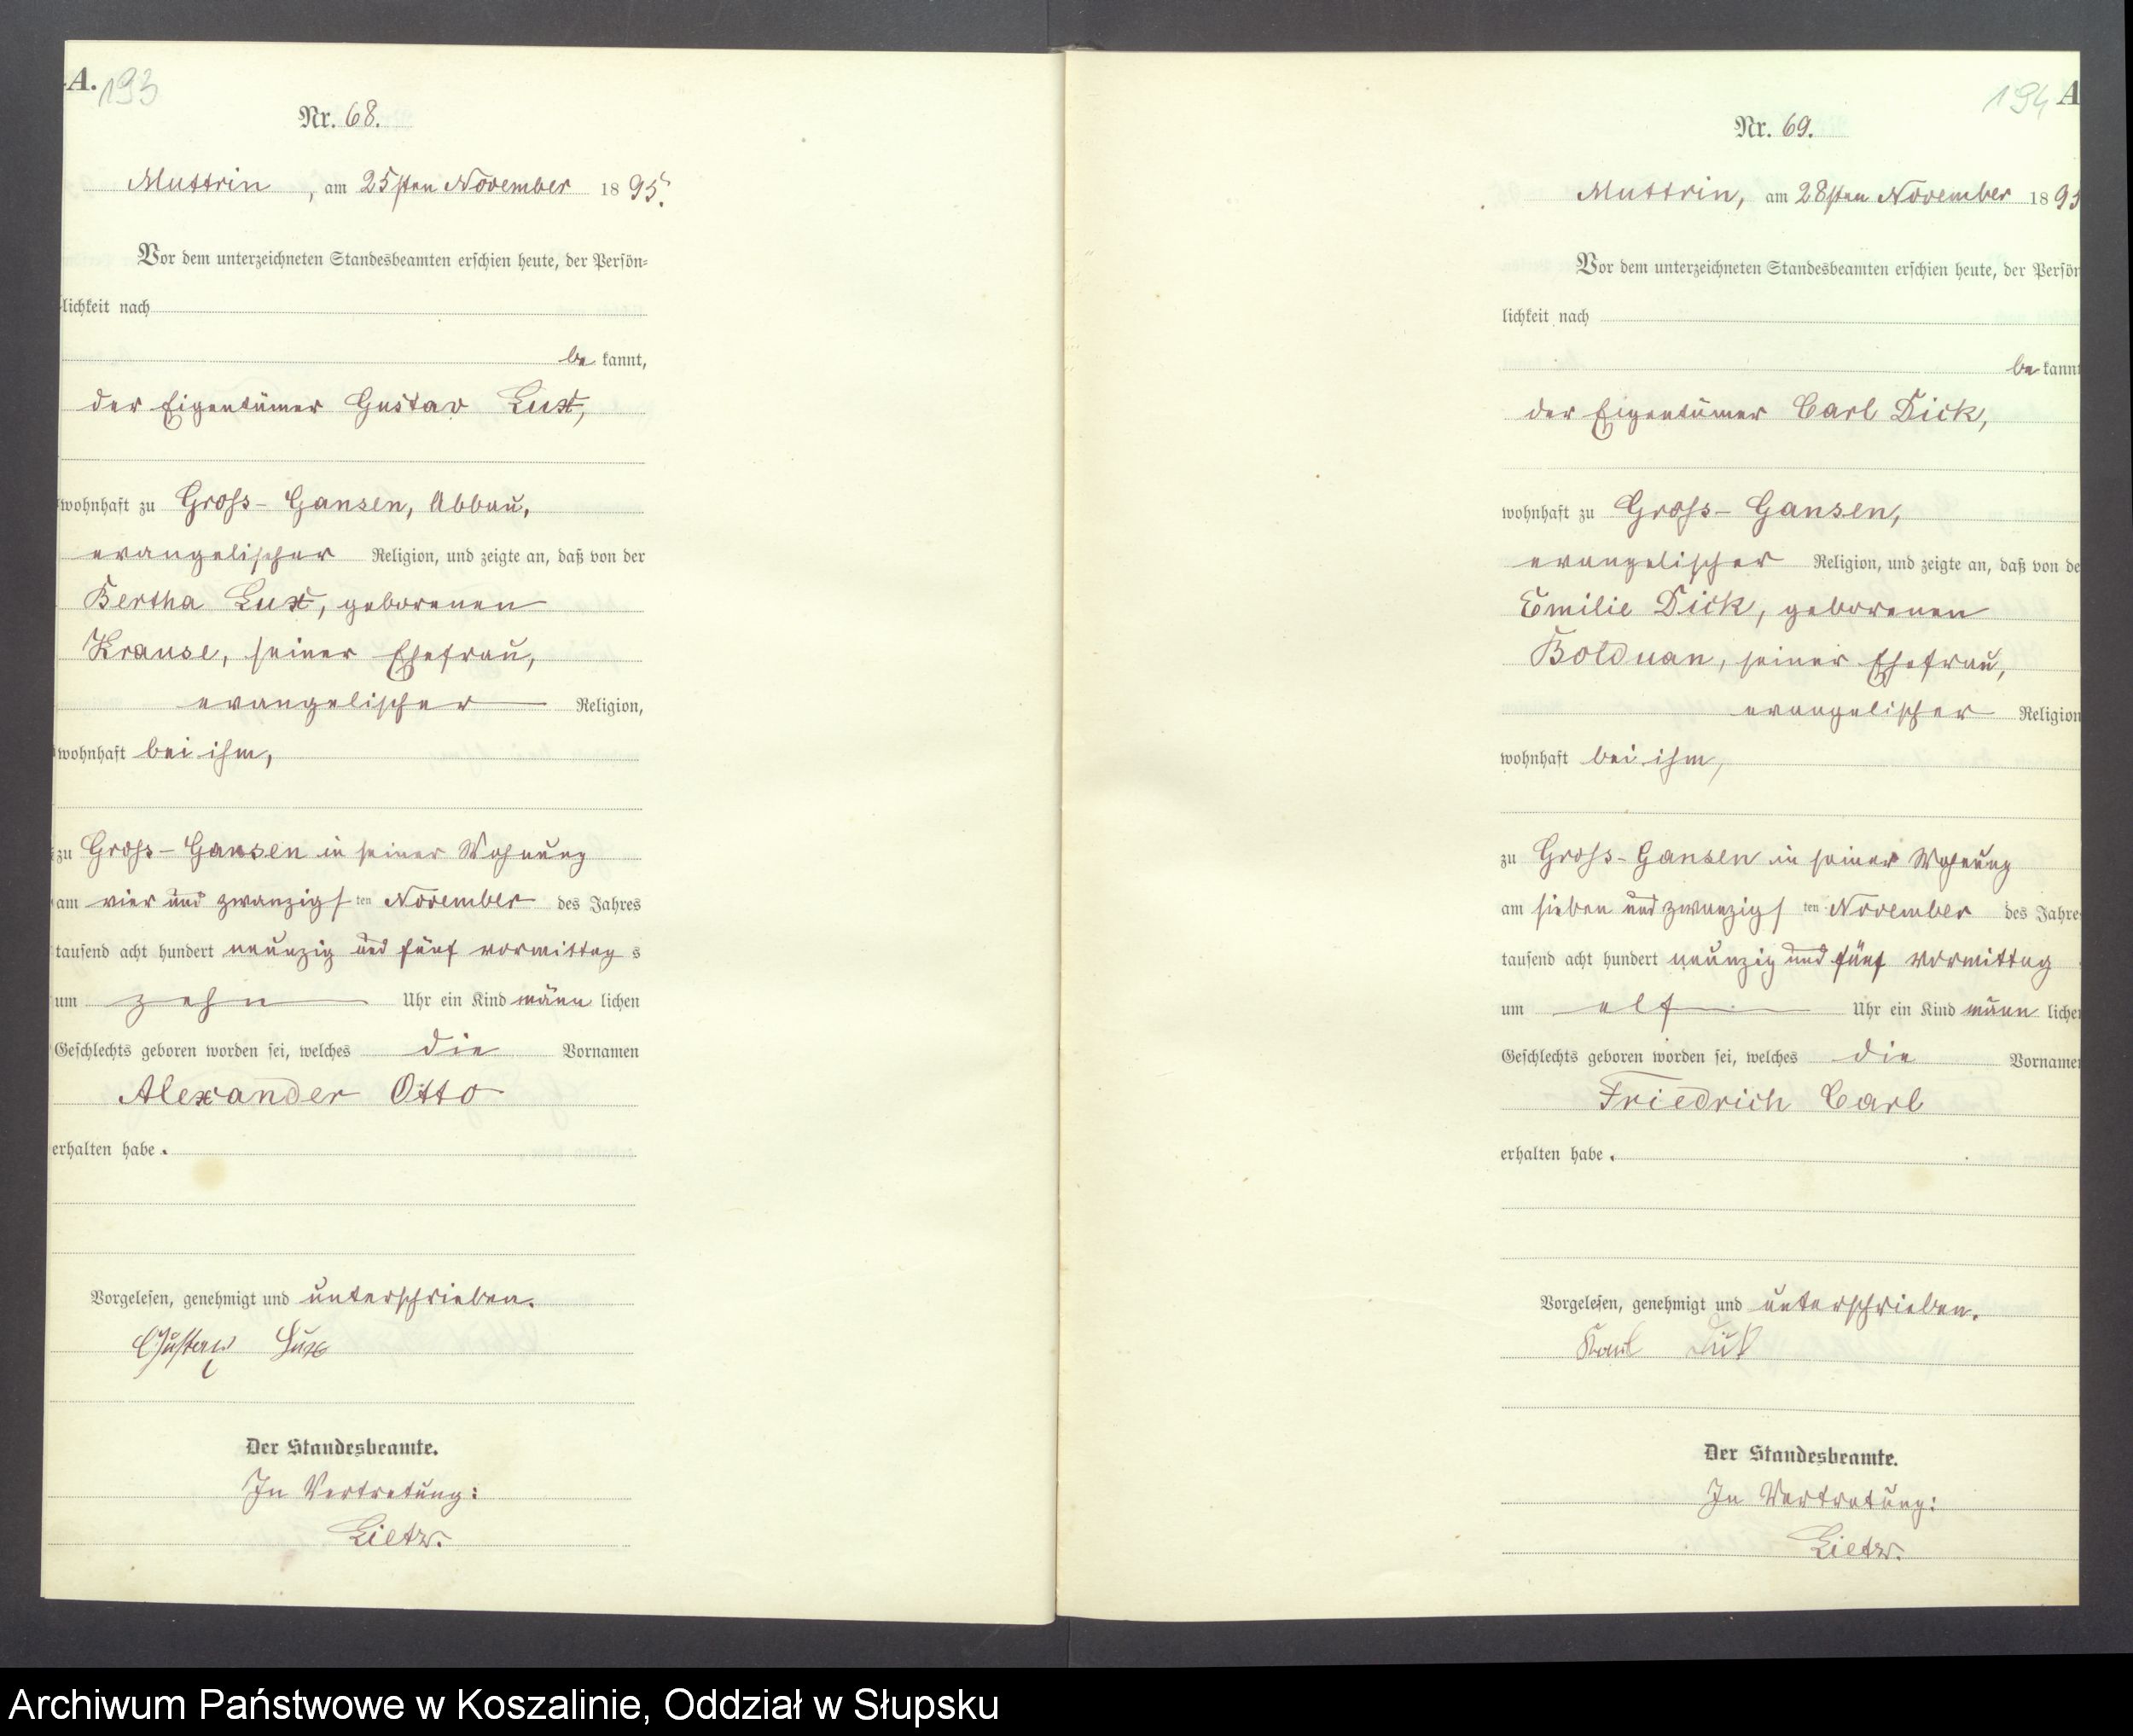 A. 193
Nr. 68.
Muttrin, am 25sten November 1895.
Vor dem unterzeichneten Standesbeamten erschien heute, der Persön-
lichkeit nach
be kannt,
der Eigentümer Gustav Lux,
wohnhaft zu Gross-Gansen, Abbau,
evangelischer Religion, und zeigte an, daß von der
Bertha Lux, geborenen
Krause, seiner Ehefrau,
evangelischer Religion,
wohnhaft bei ihm,
zu Gross-Gansen in seiner Wohnung
am vier und zwanzigsten November des Jahres
tausend acht hundert neunzig und fünf vormittags
um zehn Uhr ein Kind männlichen
Geschlechts geboren worden sei, welches die Vornamen
Alexander Otto
erhalten habe.
Vorgelesen, genehmigt und unterschrieben.
Gustav Lux
Der Standesbeamte.
In Vertretung:
Lietz.
194 A
Nr. 69.
Muttrin, am 28sten November 1895
Vor dem unterzeichneten Standesbeamten erschien heute, der Persön
lichkeit nach
be kannt
der Eigentümer Carl Dick,
wohnhaft zu Gross-Gansen,
evangelischer Religion, und zeigte an, daß von de
Emilie Dick, geborenen
Bolduan, seiner Ehefrau,
evangelischer Religion
wohnhaft bei ihm,
zu Gross-Gansen in seiner Wohnung
am sieben und zwanzigsten November des Jahre
tausend acht hundert neunzig und fünf vormittag
um elf Uhr ein Kind männliche
Geschlechts geboren worden sei, welches die Vorname
Friedrich Carl
erhalten habe.
Vorgelesen, genehmigt und unterschrieben.
Karl Dick
Der Standesbeamte.
In Vertretung:
Lietz.
Archiwum Państwowe w Koszalinie, Oddział w Słupsku